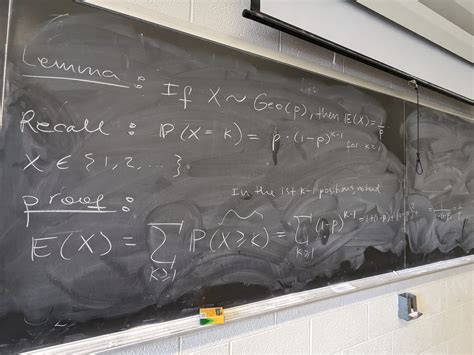 Lemma : If X ~ Geo(p), then E(X) = 1/p
Recall : P(X = k) = p · (1-p)^{k-1} for k≥1
X ∈ {1, 2, ...}.
proof :
In the 1st k-1 positions,
E(X) = ∑_{k≥1} P(X≥k) = ∑_{k≥1} (1-p)^{k-1} = 1+(1-p)+